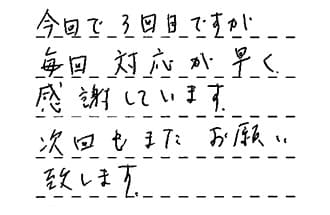 今回で3回目ですが
毎回 対応が早く
感謝しています.
次回もまたお願い
致します.